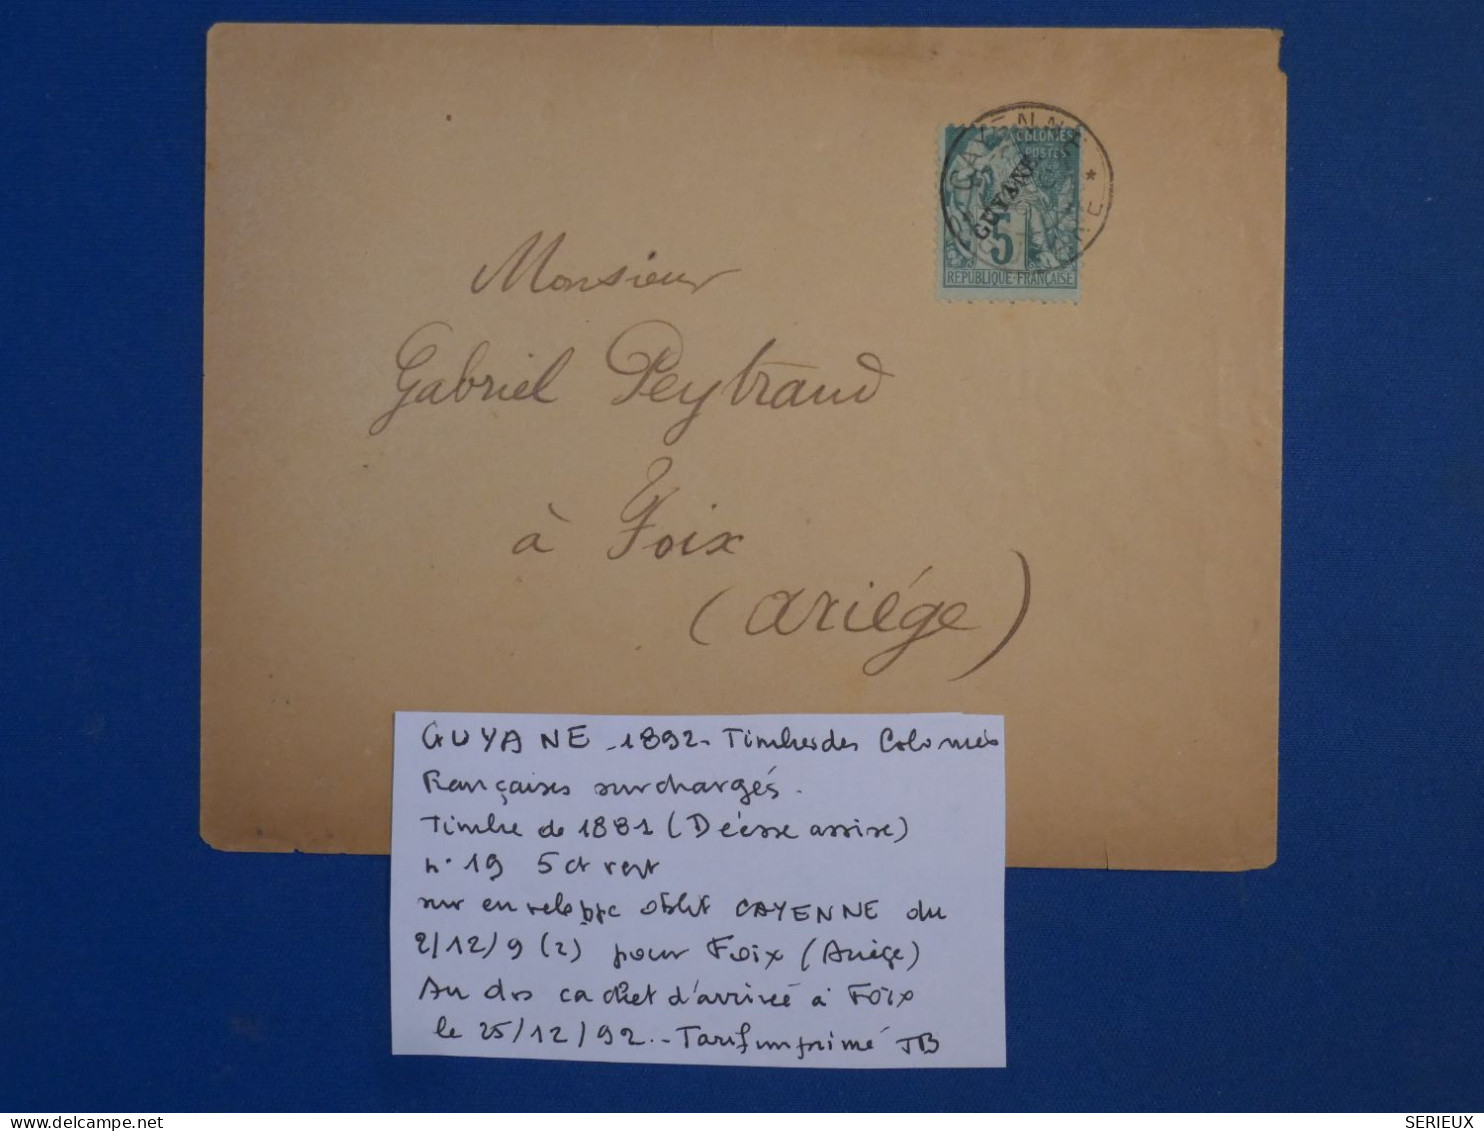 CAYENNE *
COLONIES
POSTES
GUYANE
5
REPUBLIQUE FRANÇAISE
Monsieur
Gabriel Peytraud
à Foix
(Ariége)
GUYANE - 1892 - Timbres des Colonies
Françaises surchargés.
Timbre de 1881 (Déesse assise)
n° 19 5 ct vert
sur enveloppe oblit CAYENNE du
2/12/9(2) pour Foix (Ariège)
Au dos cachet d'arrivée à Foix
le 25/12/92.. - Tarif imprimé JB
delcampe.net
SERIEUX